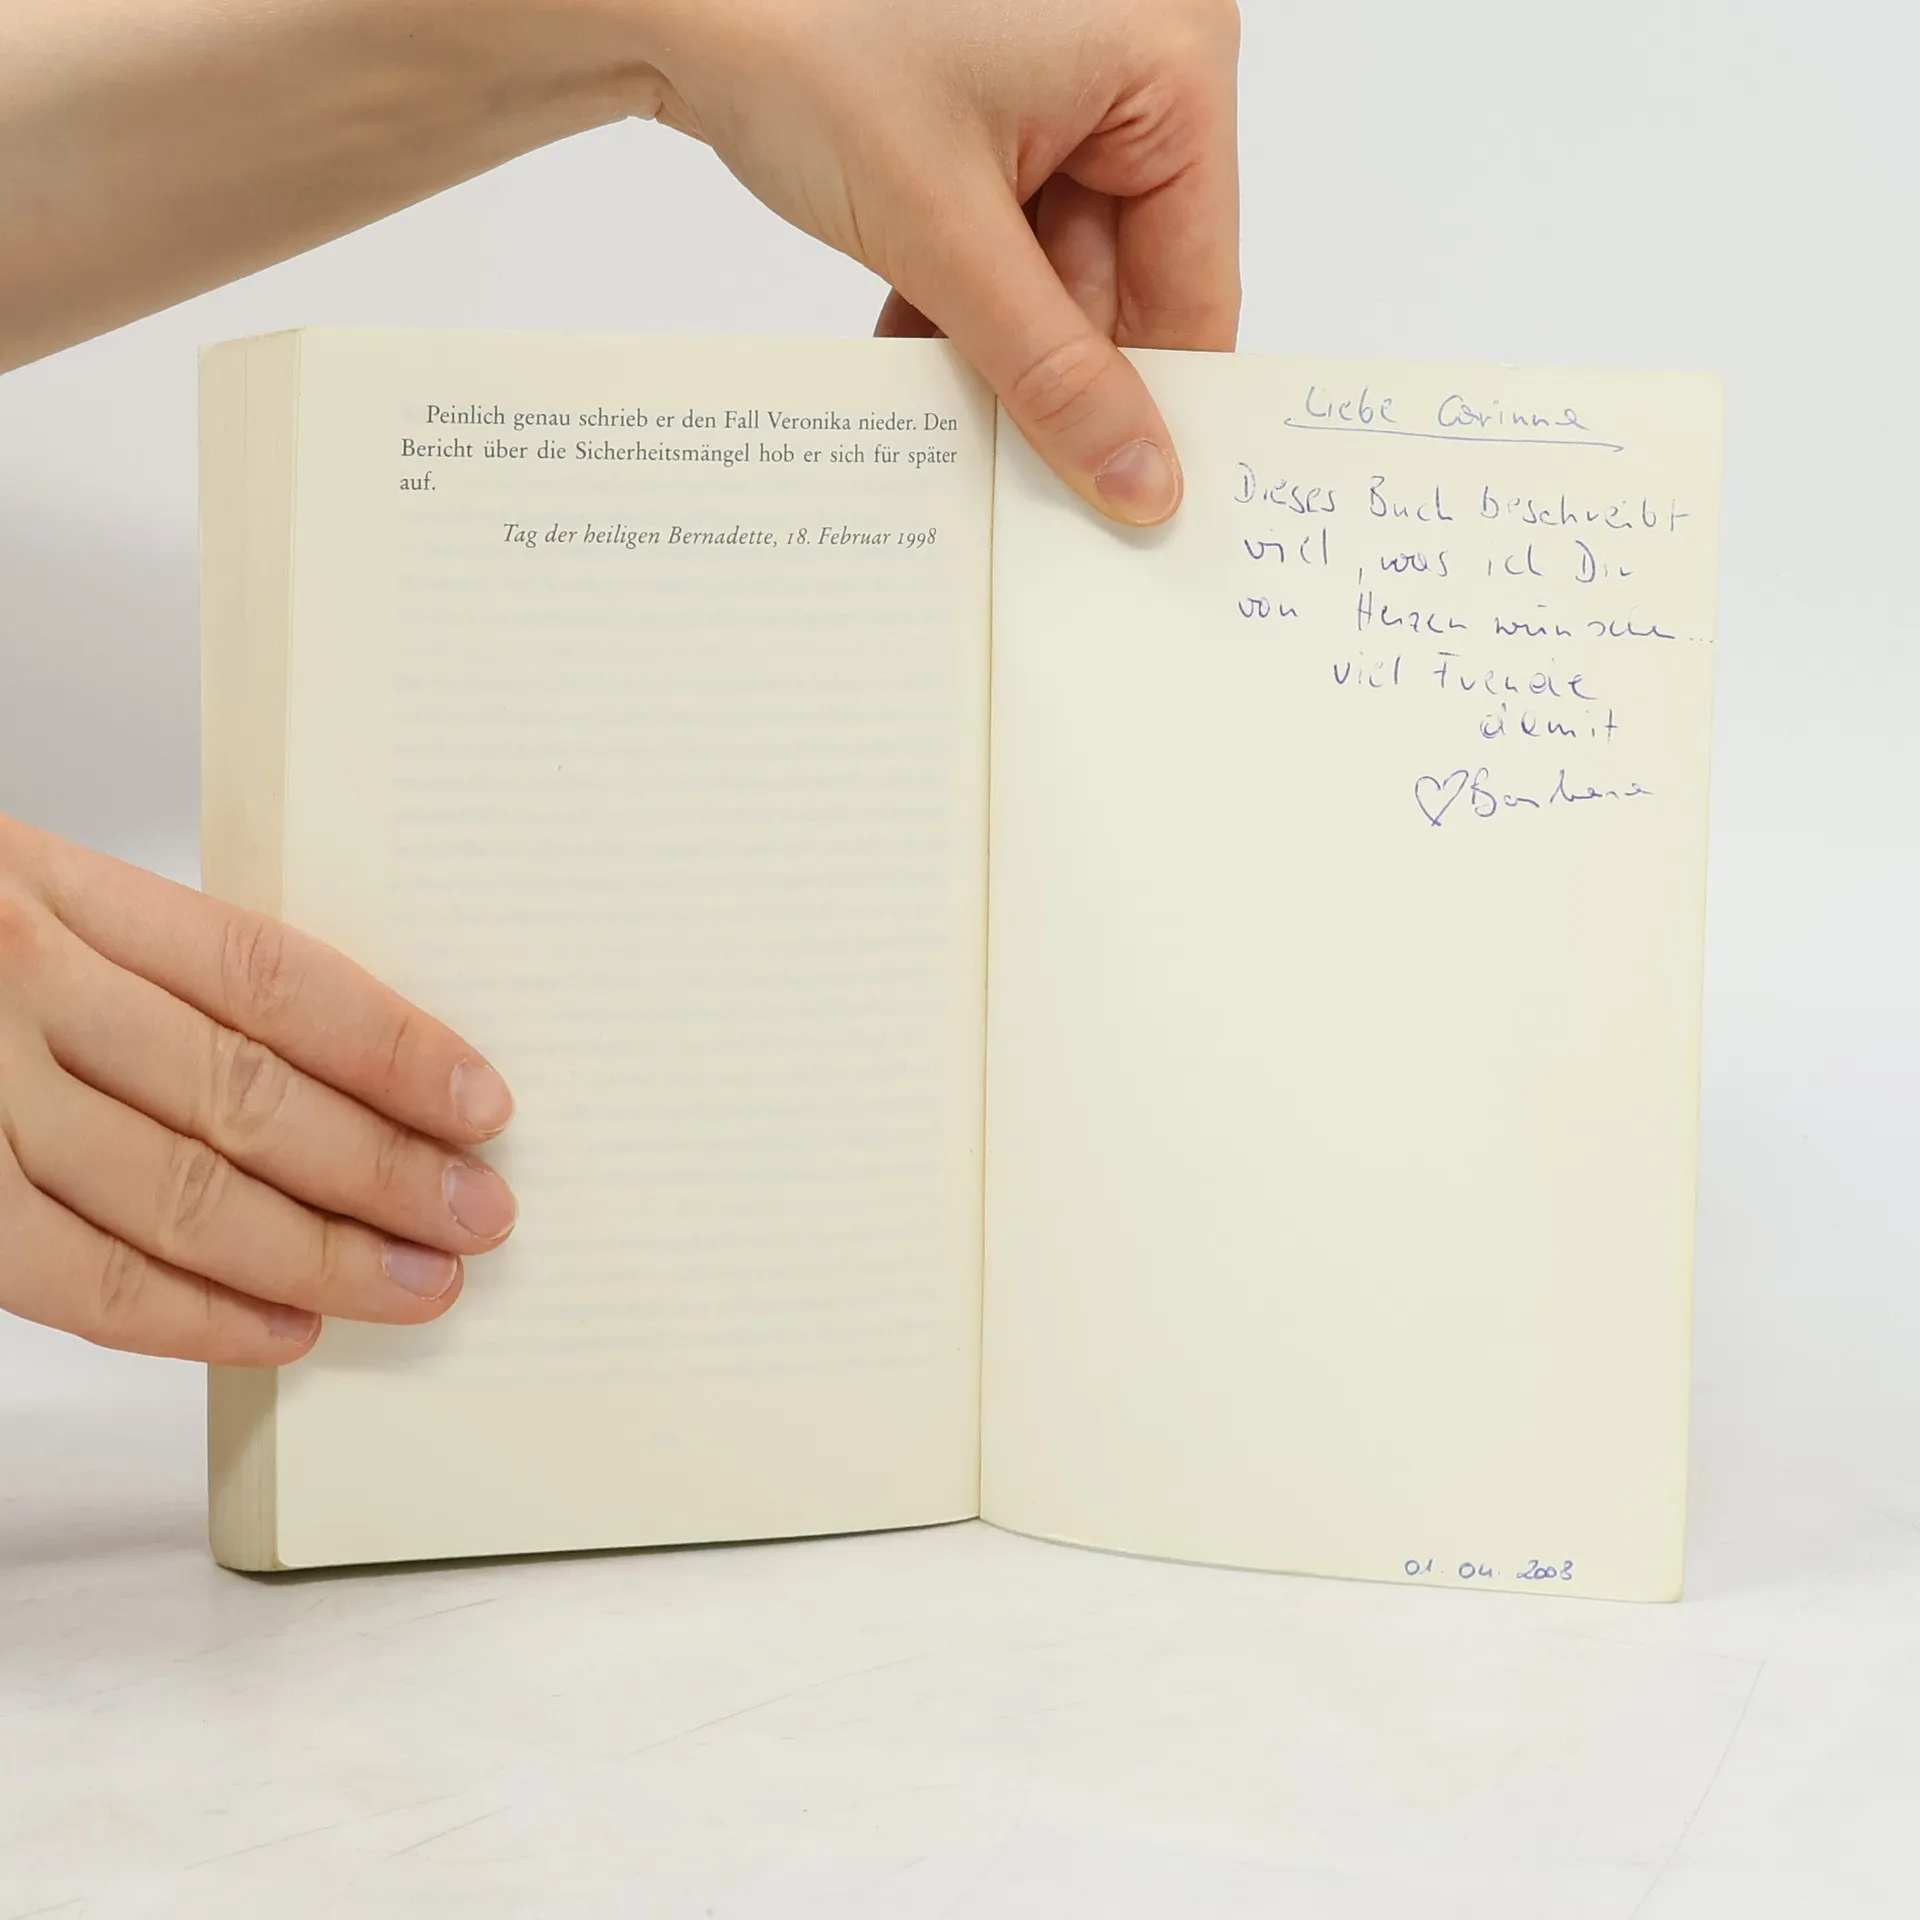 Peinlich genau schrieb er den Fall Veronika nieder. Den
Bericht über die Sicherheitsmängel hob er sich für später
auf.
Tag der heiligen Bernadette, 18. Februar 1998
Liebe Corinne
Dieses Buch beschreibt
viel, was ich Dir
von Herzen wünsche...
viel Freude
damit
♡ Barbara
01. 04. 2008